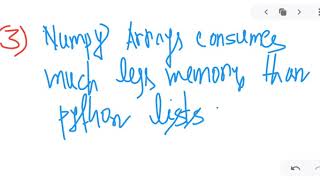 (3) Numpy Arrays consumes
much less memory than
python lists.